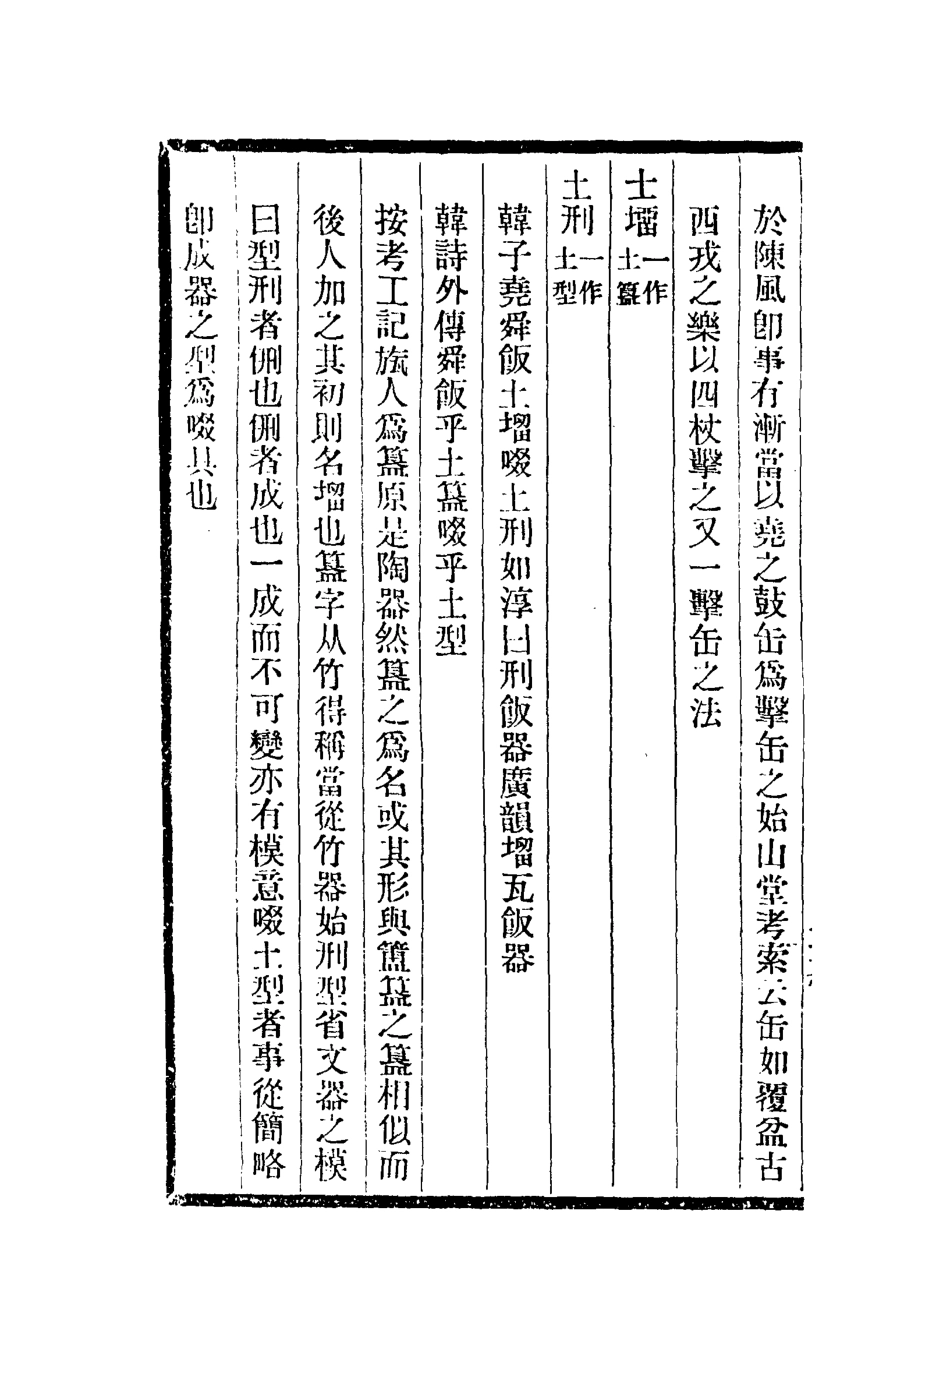 於陳風卽事有漸當以堯之鼓缶爲擊缶之始山堂考索云缶如覆盆古
西戎之樂以四杖擊之又一擊缶之法
土塯一作土簋
土刑一作土型
韓子堯舜飯土塯啜土刑如淳曰刑飯器廣韻塯瓦飯器
韓詩外傳舜飯乎土簋啜乎土型
按考工記旊人爲簋原是陶器然簋之爲名或其形與簠簋之簋相似而
後人加之其初則名塯也簋字从竹得稱當從竹器始刑型省文器之模
曰型刑者侀也侀者成也一成而不可變亦有模意啜土型者事從簡略
卽成器之型爲啜具也